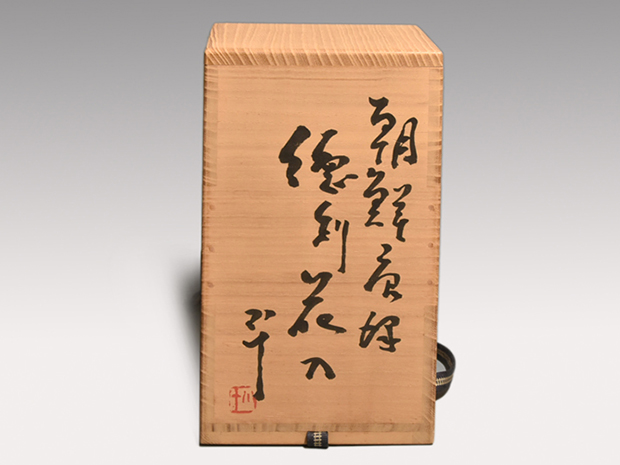 朝鮮唐津
徳利花入